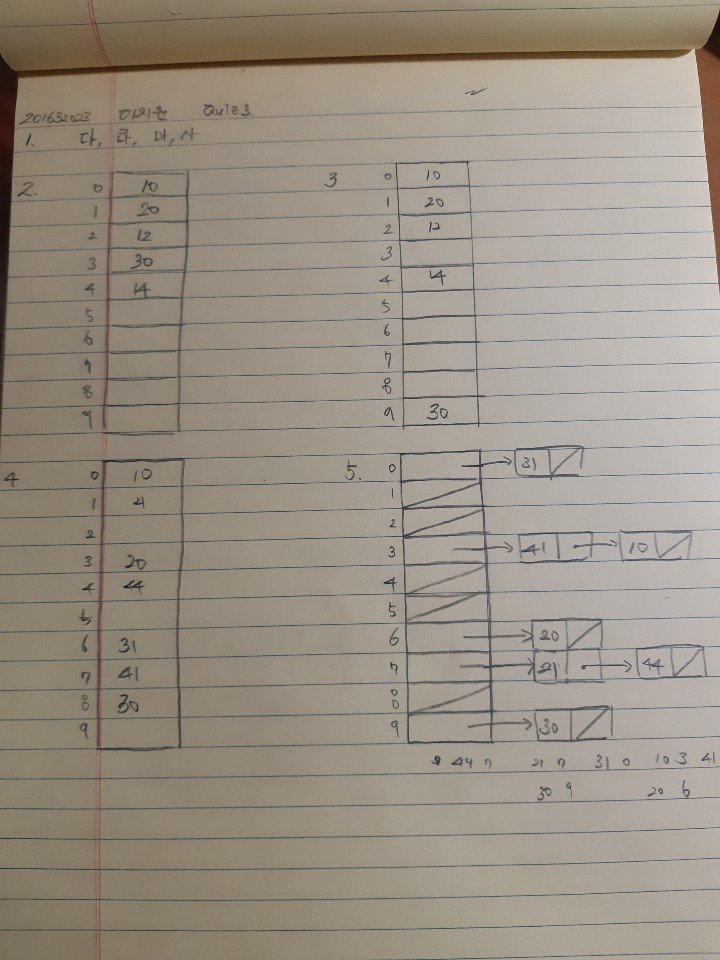 201632023 이희윤 Quiz 3.
1. 다, 라, 마, 사
2.
0 10
1 20
2 12
3 30
4 14
5
6
7
8
9
3
0 10
1 20
2 12
3
4 14
5
6
7
8
9 30
4
0 10
1 4
2
3 20
4 44
5
6 31
7 41
8 30
9
5.
0 31
1
2
3 41 10
4
5
6 20
7 21 44
8
9 30
44 7 21 7 31 0 10 3 41
30 9 20 6